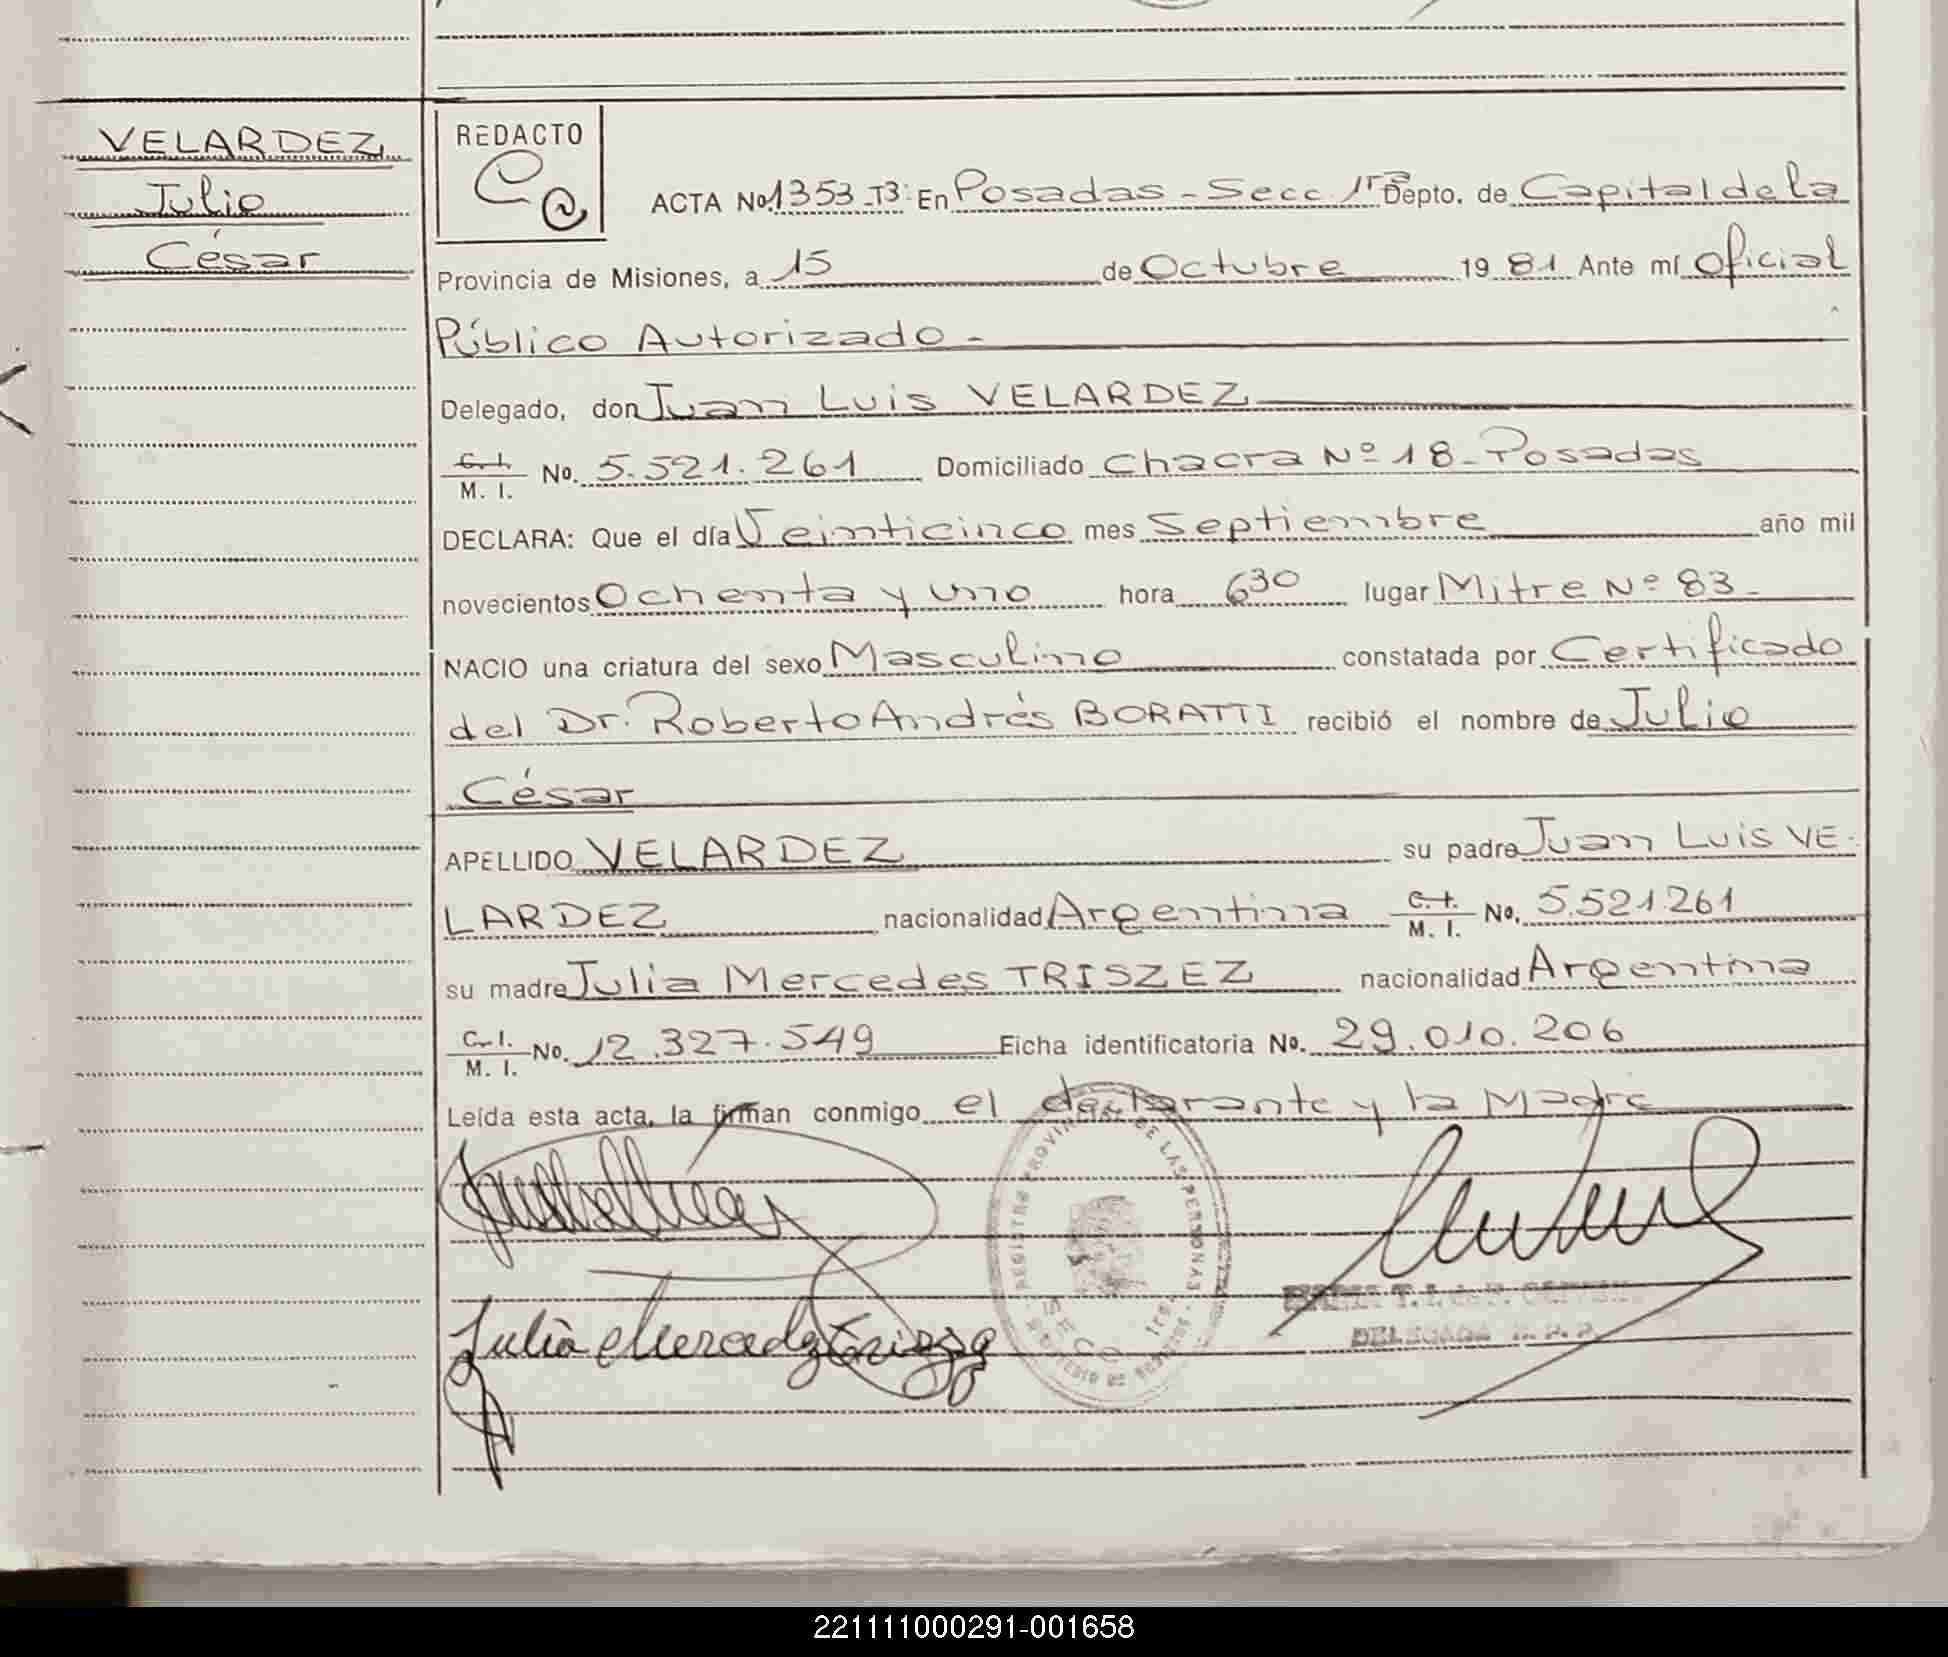 VELARDEZ
Julio
César
REDACTO
ACTA No. 1353-T3: En Posadas - Secc 1ra Depto. de Capital de la
Provincia de Misiones, a 15 de Octubre 1981 Ante mí Oficial
Público Autorizado -
Delegado, don Juan Luis VELARDEZ
C. I. M. I. No. 5.521.261 Domiciliado Chacra Nº 18 - Posadas
DECLARA: Que el día Veinticinco mes Septiembre año mil
novecientos Ochenta y uno hora 6 30 lugar Mitre Nº 83 -
NACIO una criatura del sexo Masculino constatada por Certificado
del Dr. Roberto Andrés BORATTI recibió el nombre de Julio
César
APELLIDO VELARDEZ su padre Juan Luis VE-
LARDEZ nacionalidad Argentina C. I. M. I. No. 5.521261
su madre Julia Mercedes TRISZEZ nacionalidad Argentina
C. I. M. I. No. 12.327.549 Ficha identificatoria No. 29.010.206
Leída esta acta, la firman conmigo el declarante y la Madre
REGISTRO PROVINCIAL DE LAS PERSONAS
SECC. 1ra.
Julia Mercedes
DELEGADA R. P. P.
221111000291-001658